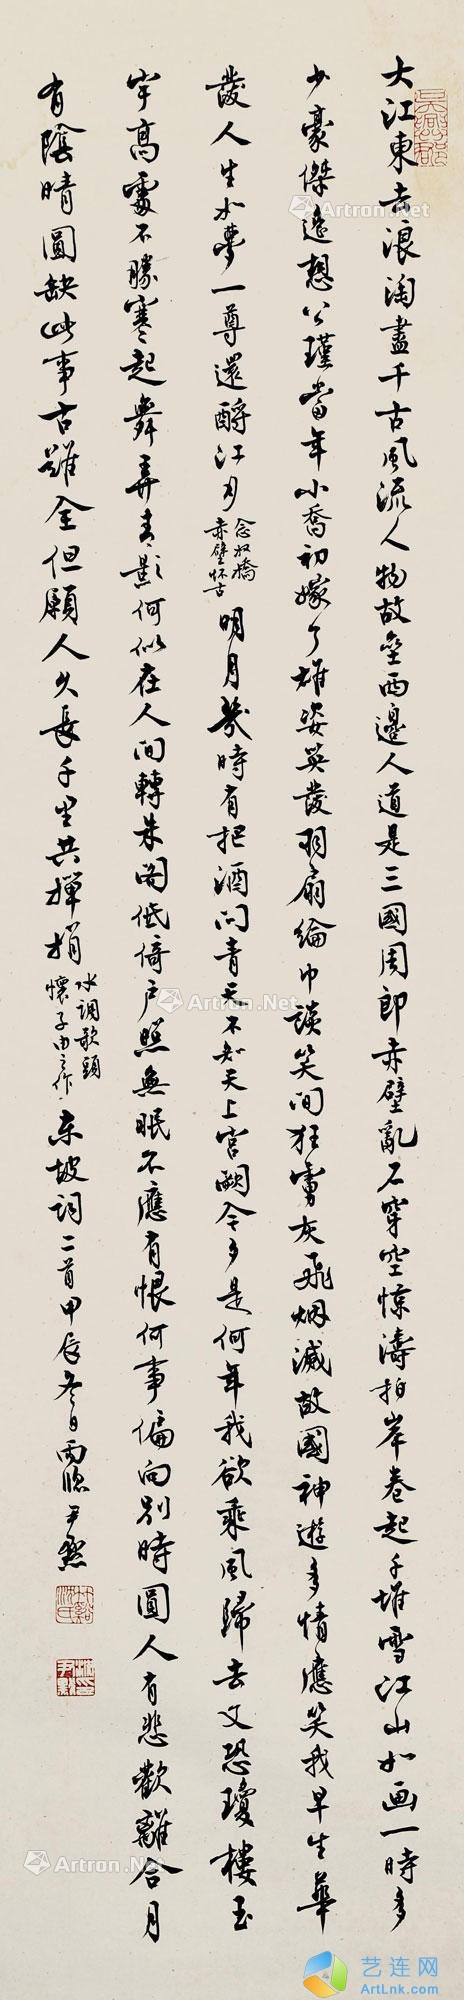 大江東去浪淘盡千古風流人物故壘西邊人道是三國周郎赤壁亂石穿空惊濤拍岸卷起千堆雪江山如画一時多
少豪傑遥想公瑾當年小喬初嫁了雄姿英發羽扇綸巾談笑間狂虜灰飛烟滅故國神遊多情應笑我早生華
發人生如夢一尊還酹江月
念奴嬌
赤壁怀古
明月幾時有把酒问青天不知天上宫闕今夕是何年我欲乘風歸去又恐瓊樓玉
宇高處不勝寒起舞弄清影何似在人间轉朱閣低倚户照無眠不應有恨何事偏向别時圓人有悲歡離合月
有陰晴圓缺此事古難全但願人久長千里共嬋娟
水調歌頭
懷子由之作
東坡詞二首甲辰冬日雨牕尹默
吴興郡
沈氏
沈尹默
Artron.Net
Artron.Net
Artron.Net
Artron.Net
Artron.Net
Artron.Net
艺连网
ArtLnk.com